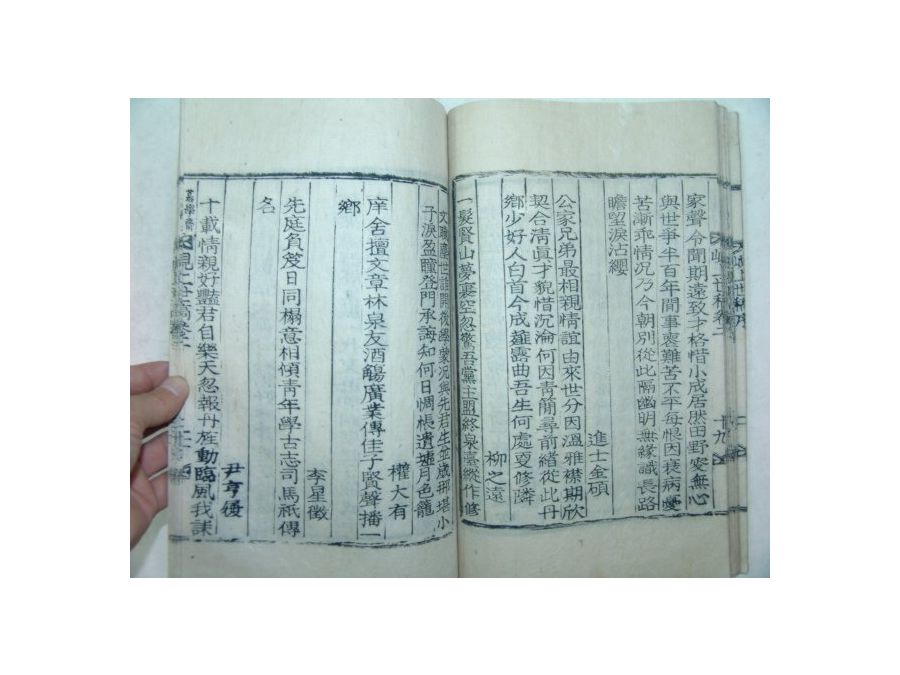 家聲令聞期遠致才格惜小成居然田野寄無心
與世爭半百年間事喪難苦不平每恨因衰病
苦漸乖情況乃今朝別從此隔幽明無緣識長路
瞻望淚沾纓
進士金碩
公家兄弟最相親情誼由來世分因溫雅襟期欣
契合淸眞才貌惜沉淪何因靑簡尋前緖從此丹
鄕少好人白首今成薤露曲吾生何處更修隣
柳之遠
一髮賢山夢裏空忽驚吾黨主盟終泉臺縱作修
文 世誰開後學蒙況與先君生並歲那堪小
子淚盈瞳登門承誨知何日惆悵遺墟月色籠
權大有
庠舍擅文章林泉友酒觴廣業傳佳子賢聲播一
鄕
李星徵
先庭負笈日同榻意相傾靑年學古志司馬祇傳
名
尹亨
十載情親好豔君自樂天忽報丹旌動臨風我